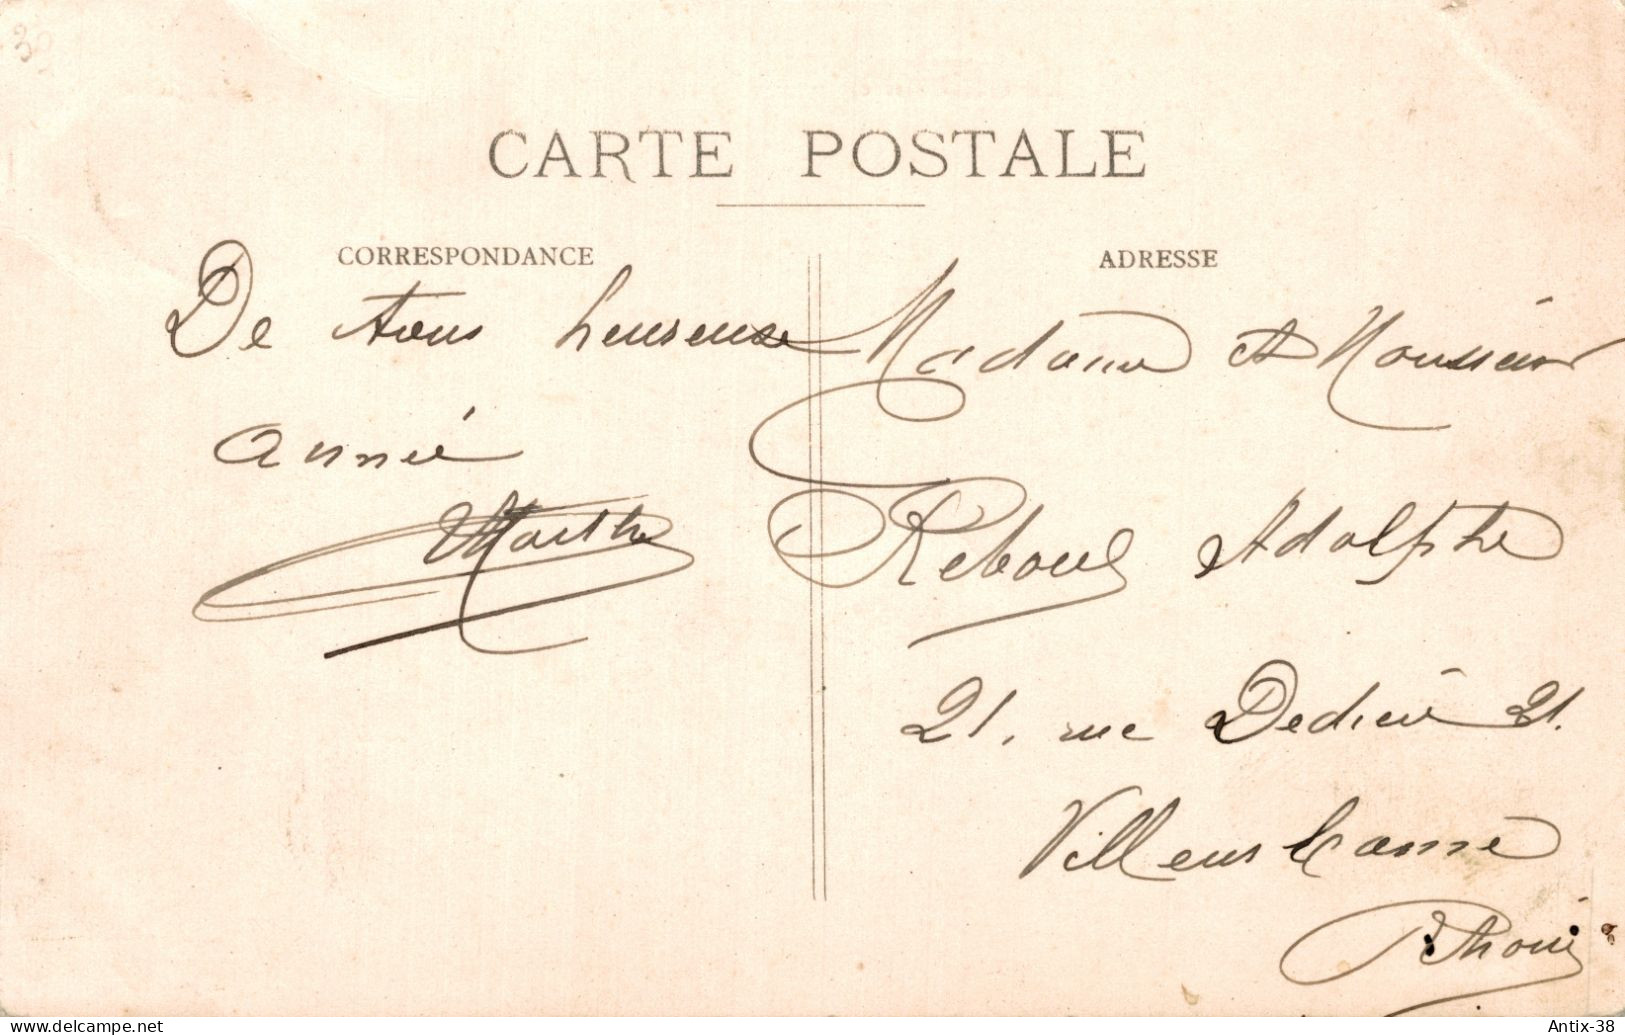 CARTE POSTALE
CORRESPONDANCE
De tous heureuse
année
Marthe
ADRESSE
Madame et Monsieur
Reboul Adolphe
21, rue Dedieu 21.
Villeurbanne
Rhone
delcampe.net
Antix-38